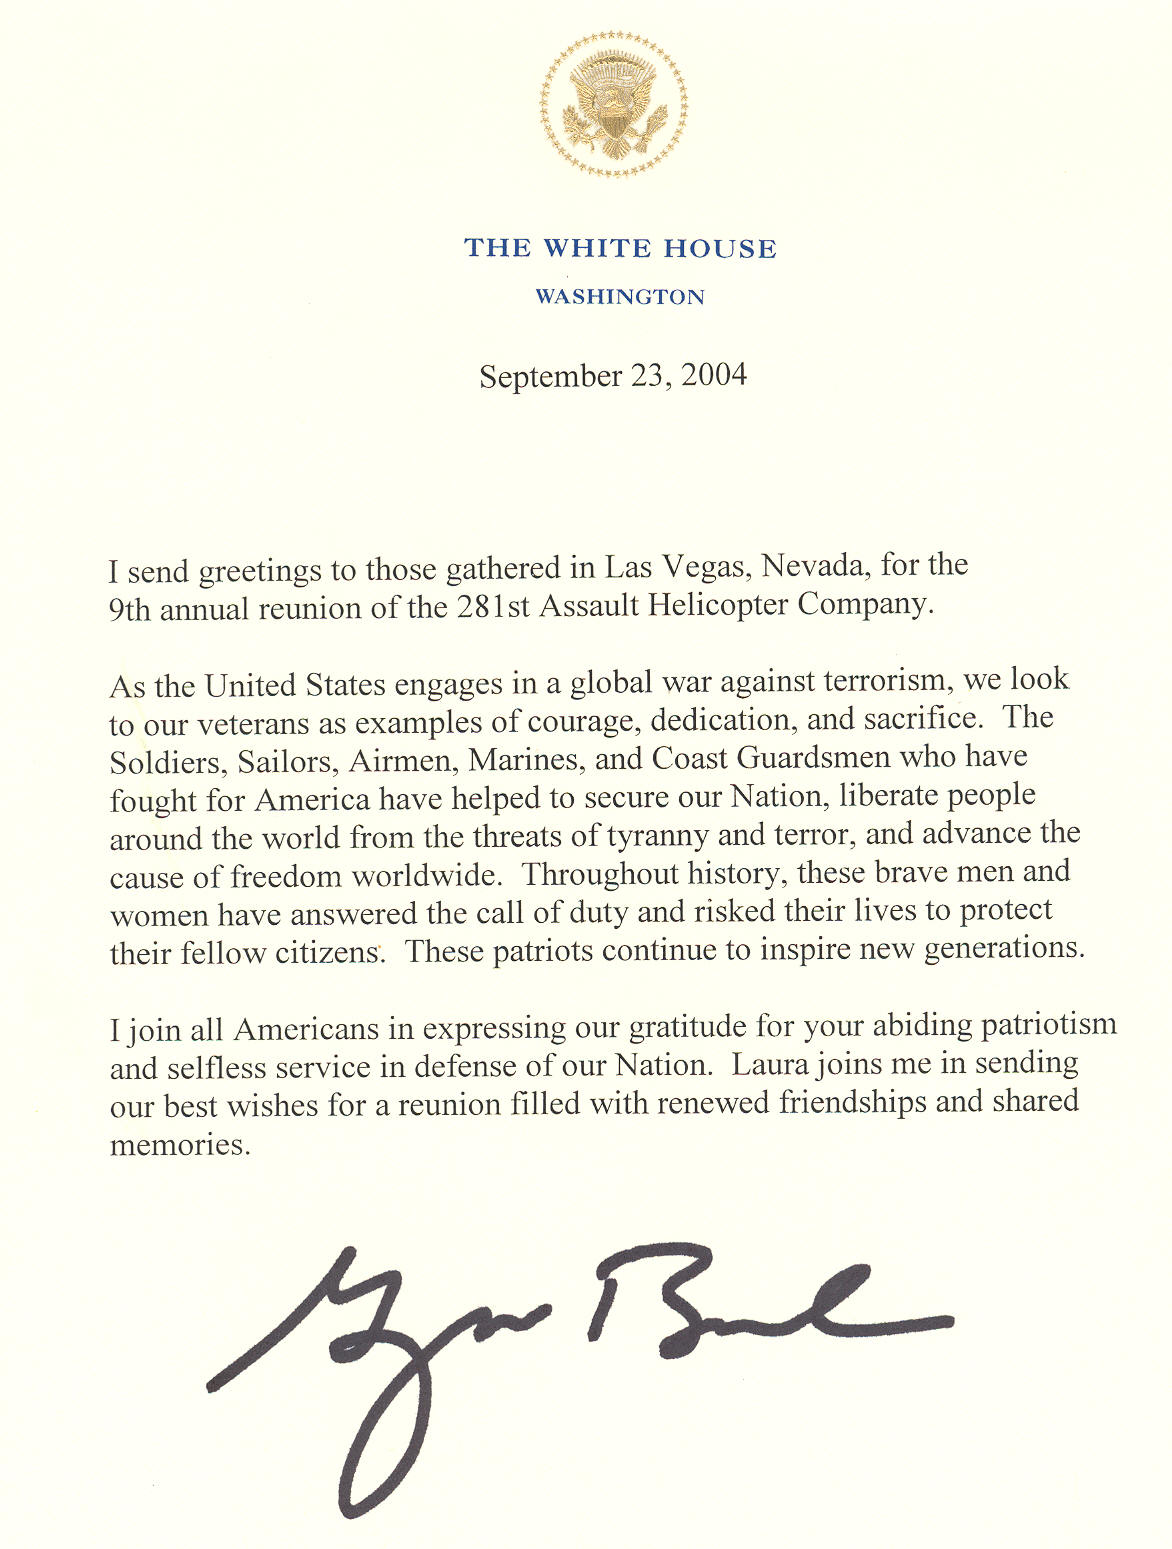 THE WHITE HOUSE
WASHINGTON
September 23, 2004
I send greetings to those gathered in Las Vegas, Nevada, for the
9th annual reunion of the 281st Assault Helicopter Company.
As the United States engages in a global war against terrorism, we look
to our veterans as examples of courage, dedication, and sacrifice.  The
Soldiers, Sailors, Airmen, Marines, and Coast Guardsmen who have
fought for America have helped to secure our Nation, liberate people
around the world from the threats of tyranny and terror, and advance the
cause of freedom worldwide.  Throughout history, these brave men and
women have answered the call of duty and risked their lives to protect
their fellow citizens.  These patriots continue to inspire new generations.
I join all Americans in expressing our gratitude for your abiding patriotism
and selfless service in defense of our Nation.  Laura joins me in sending
our best wishes for a reunion filled with renewed friendships and shared
memories.